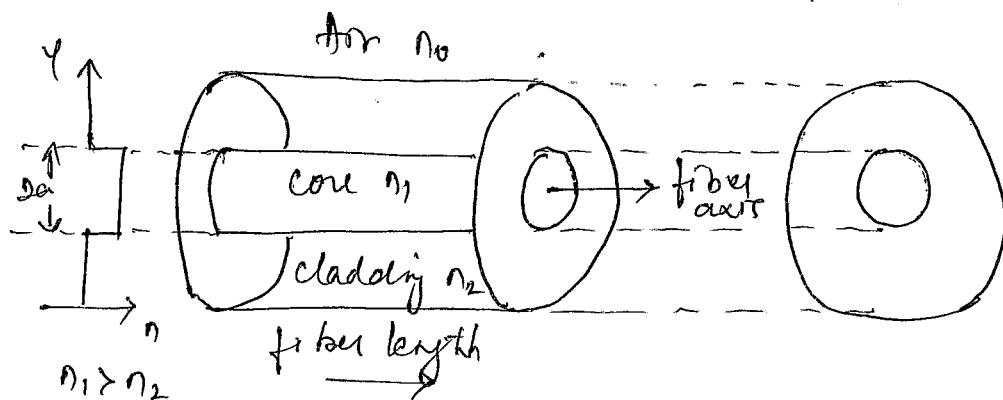 Air n0
Y
2a
core n1
fiber
axis
cladding n2
n
fiber length
n1 > n2